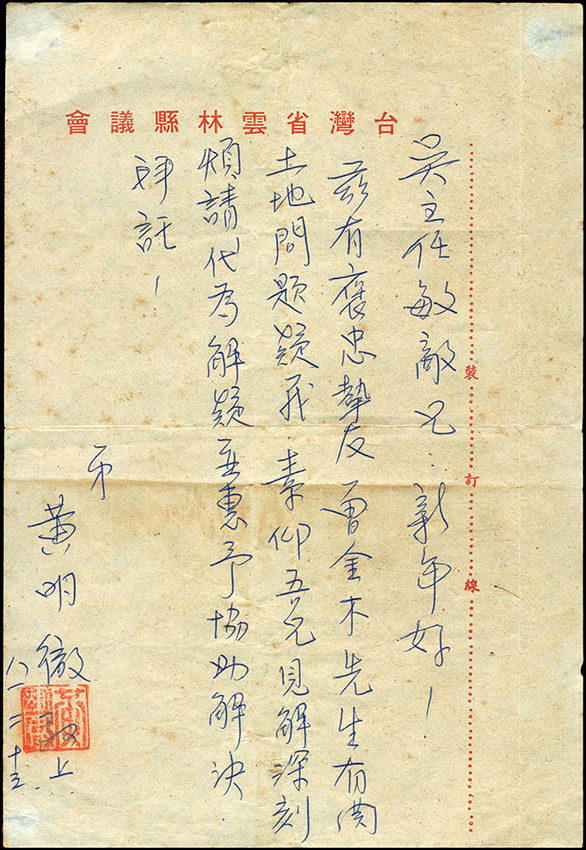 台灣省雲林縣議會
吳主任敏敵兄：新年好！
茲有褒忠摯友曾金木先生有関
土地問題疑義．素仰五兄見解深刻
煩請代為解疑並惠予協助解決
拜託！
弟
黃明徽 敬上
八一．二．十三．
裝訂線